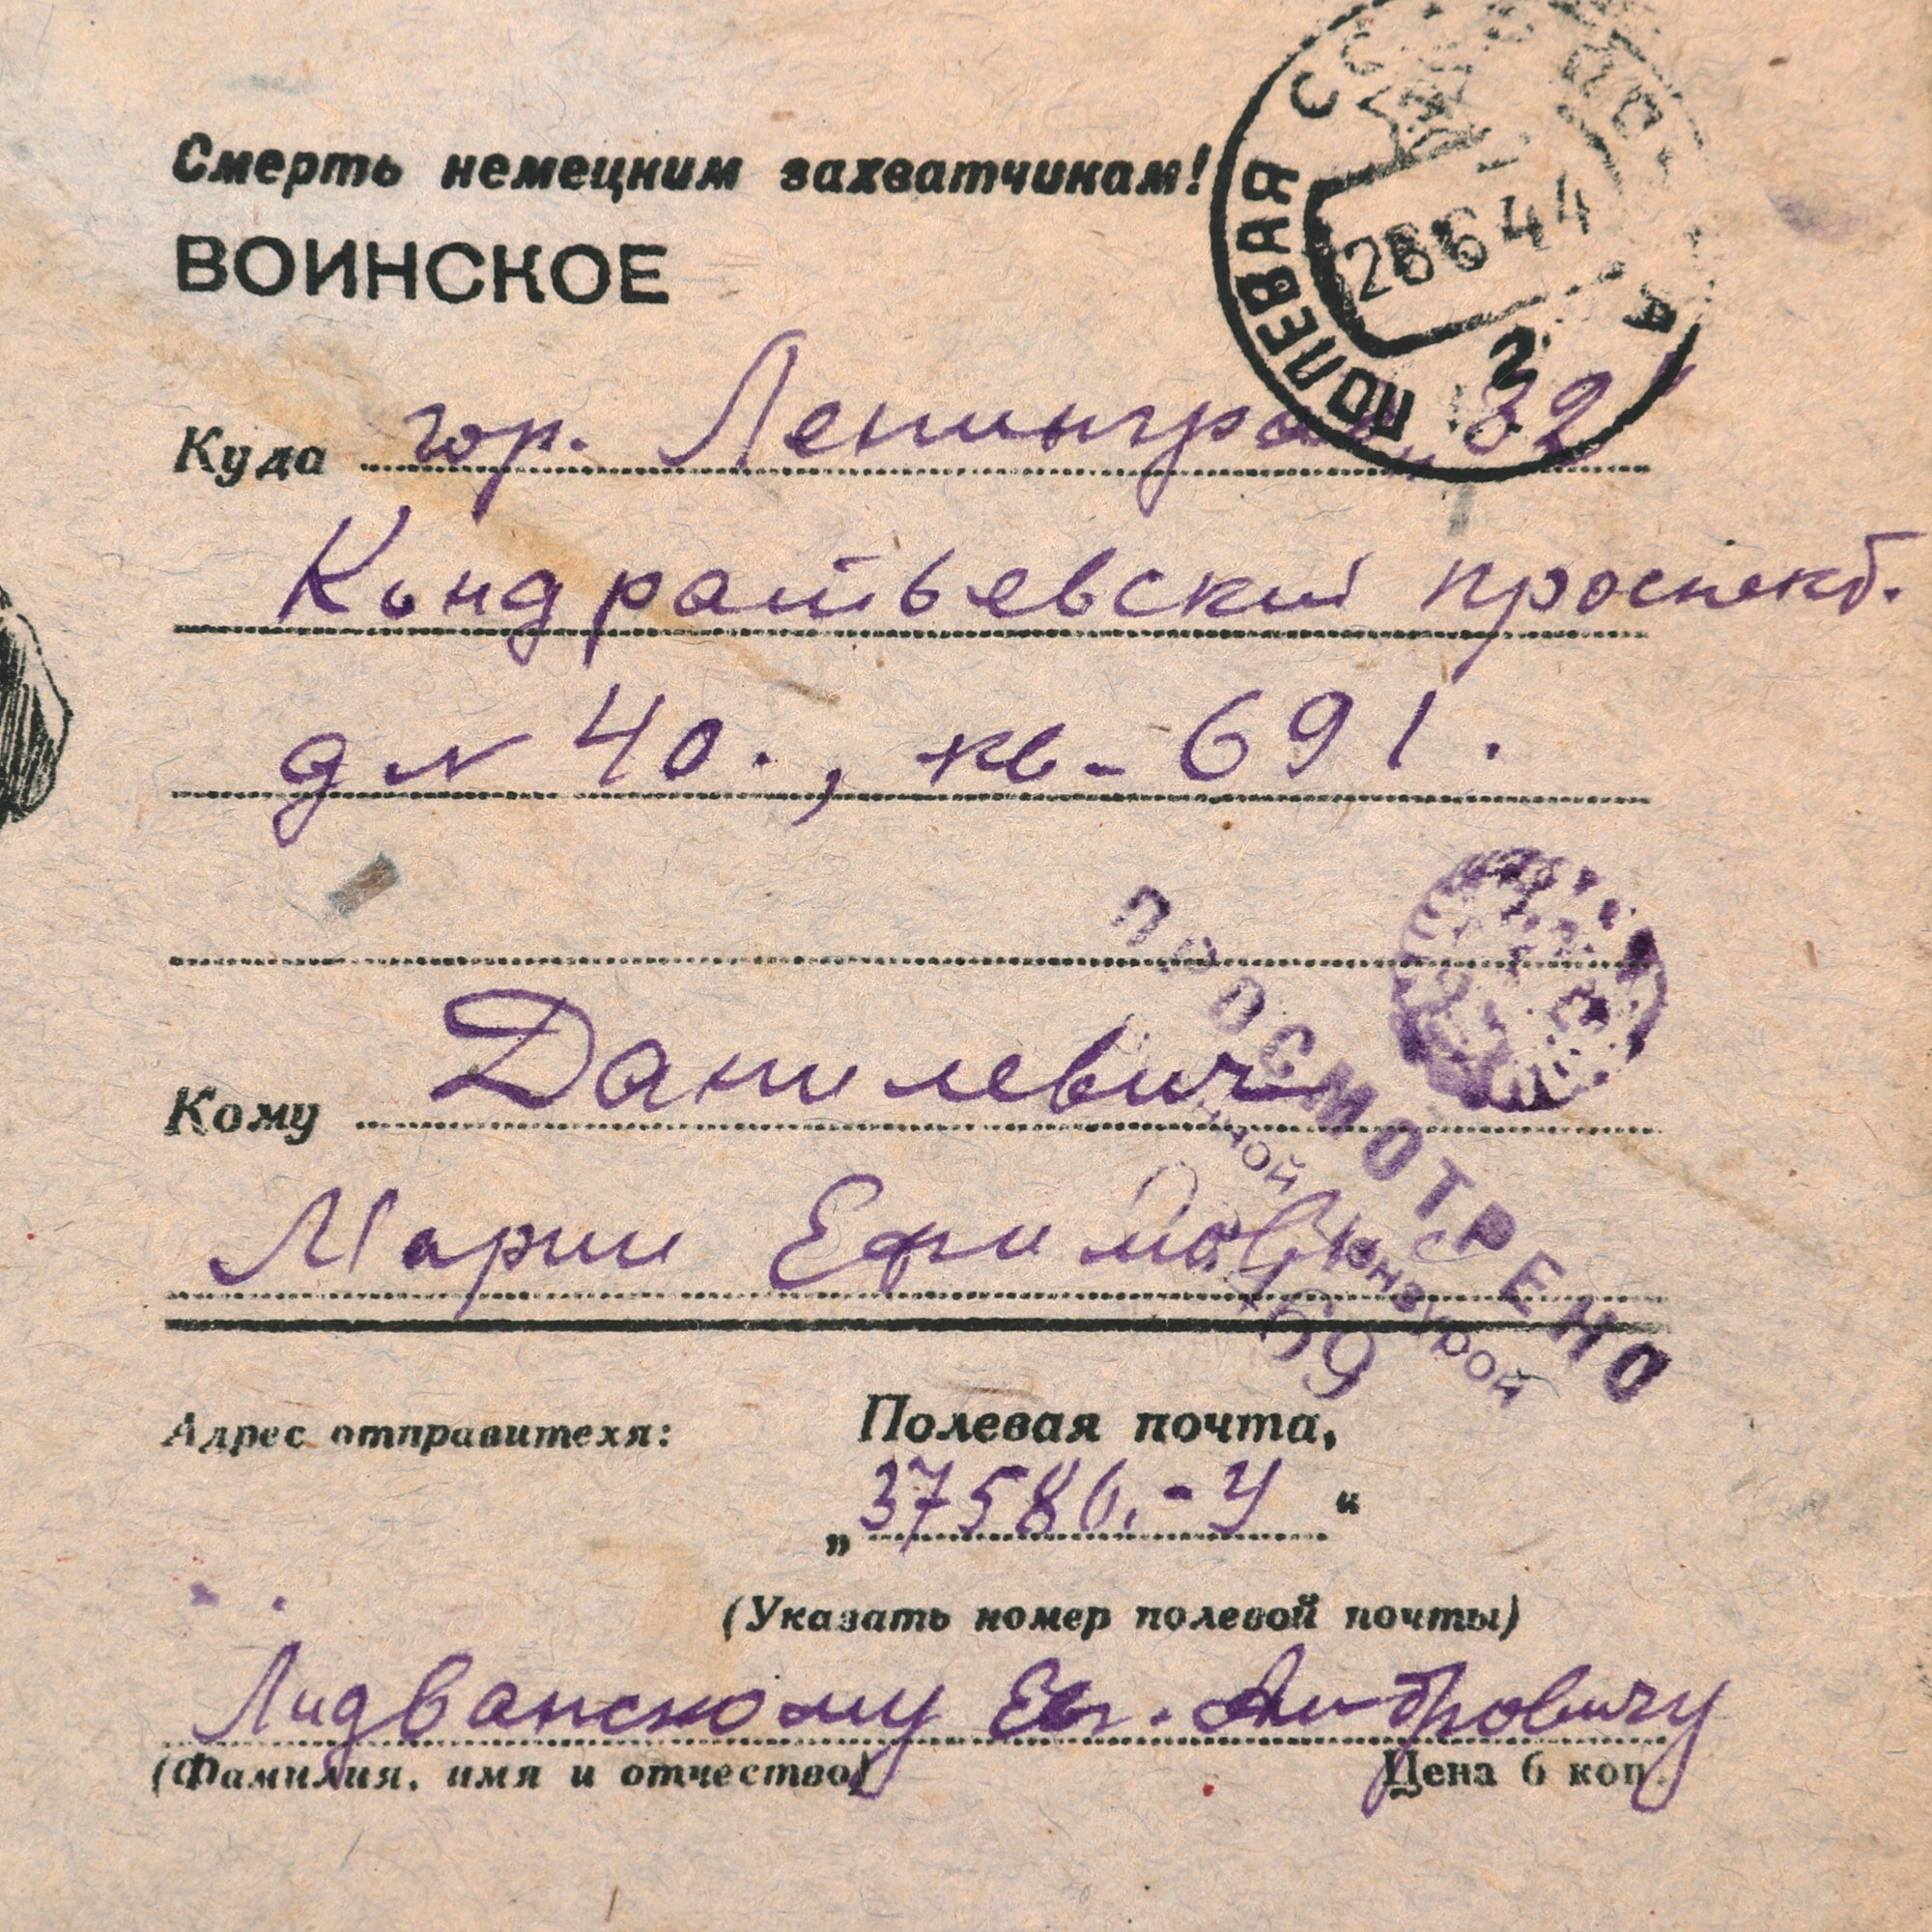 Смерть немецким захватчикам!
ВОИНСКОЕ
ПОЛЕВАЯ
28 6 44
2
Куда гор. Ленинград, 32
Кондратьевский проспект.
д № 40., кв - 691.
ПРОСМОТРЕНО
Военной Цензурой
Кому Данилевич
Марии Ефимовне
Адрес отправитехя: Полевая почта,
„37586.-У“
(Указать номер полевой почты)
Лидванскому Евг.
(Фамилия, имя и отчество) Цена 6 коп.